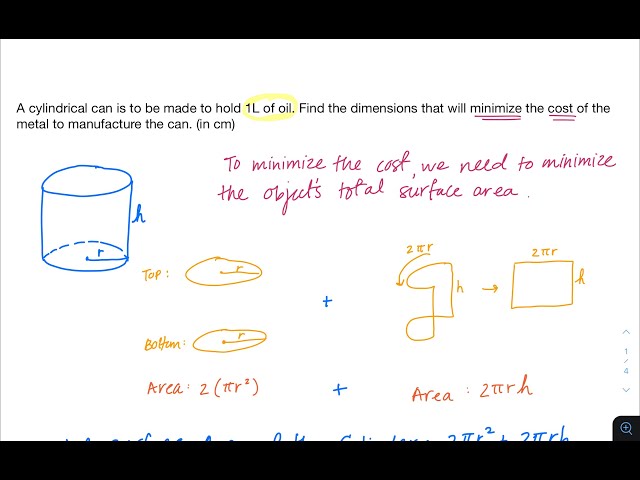 A cylindrical can is to be made to hold 1L of oil. Find the dimensions that will minimize the cost of the
metal to manufacture the can. (in cm)
To minimize the cost, we need to minimize
the object's total surface area.
h
r
Top: r
2πr
h → 2πr
h
+
Bottom: r
Area: 2(πr²) + Area: 2πrh
1
/
4
2πr² + 2πrh